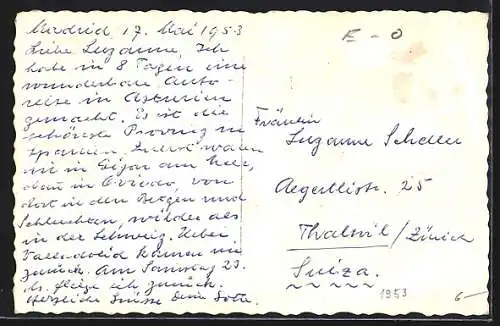 Madrid 17. Mai 1953
Liebe Suzanne, Ich
habe in 8 Tagen eine
wunderbare Auto-
reise in Asturien
gemacht. Es ist die
schönste Provinz in
Spanien. Zuerst waren
wir in Gijon am Meer,
dan in Oviedo, von
dort in den Bergen und
Schluchten, wilder als
in der Schweiz. Ueber
Valladolid kamen wir
zurück. Am Samstag 23.
ds. fliege ich zurück.
Herzliche Grüsse Dein
E - O
Fräulein
Suzanne Scheller
Aegertlistr. 25
Thalwil / Zürich
Suiza.
1953
6-